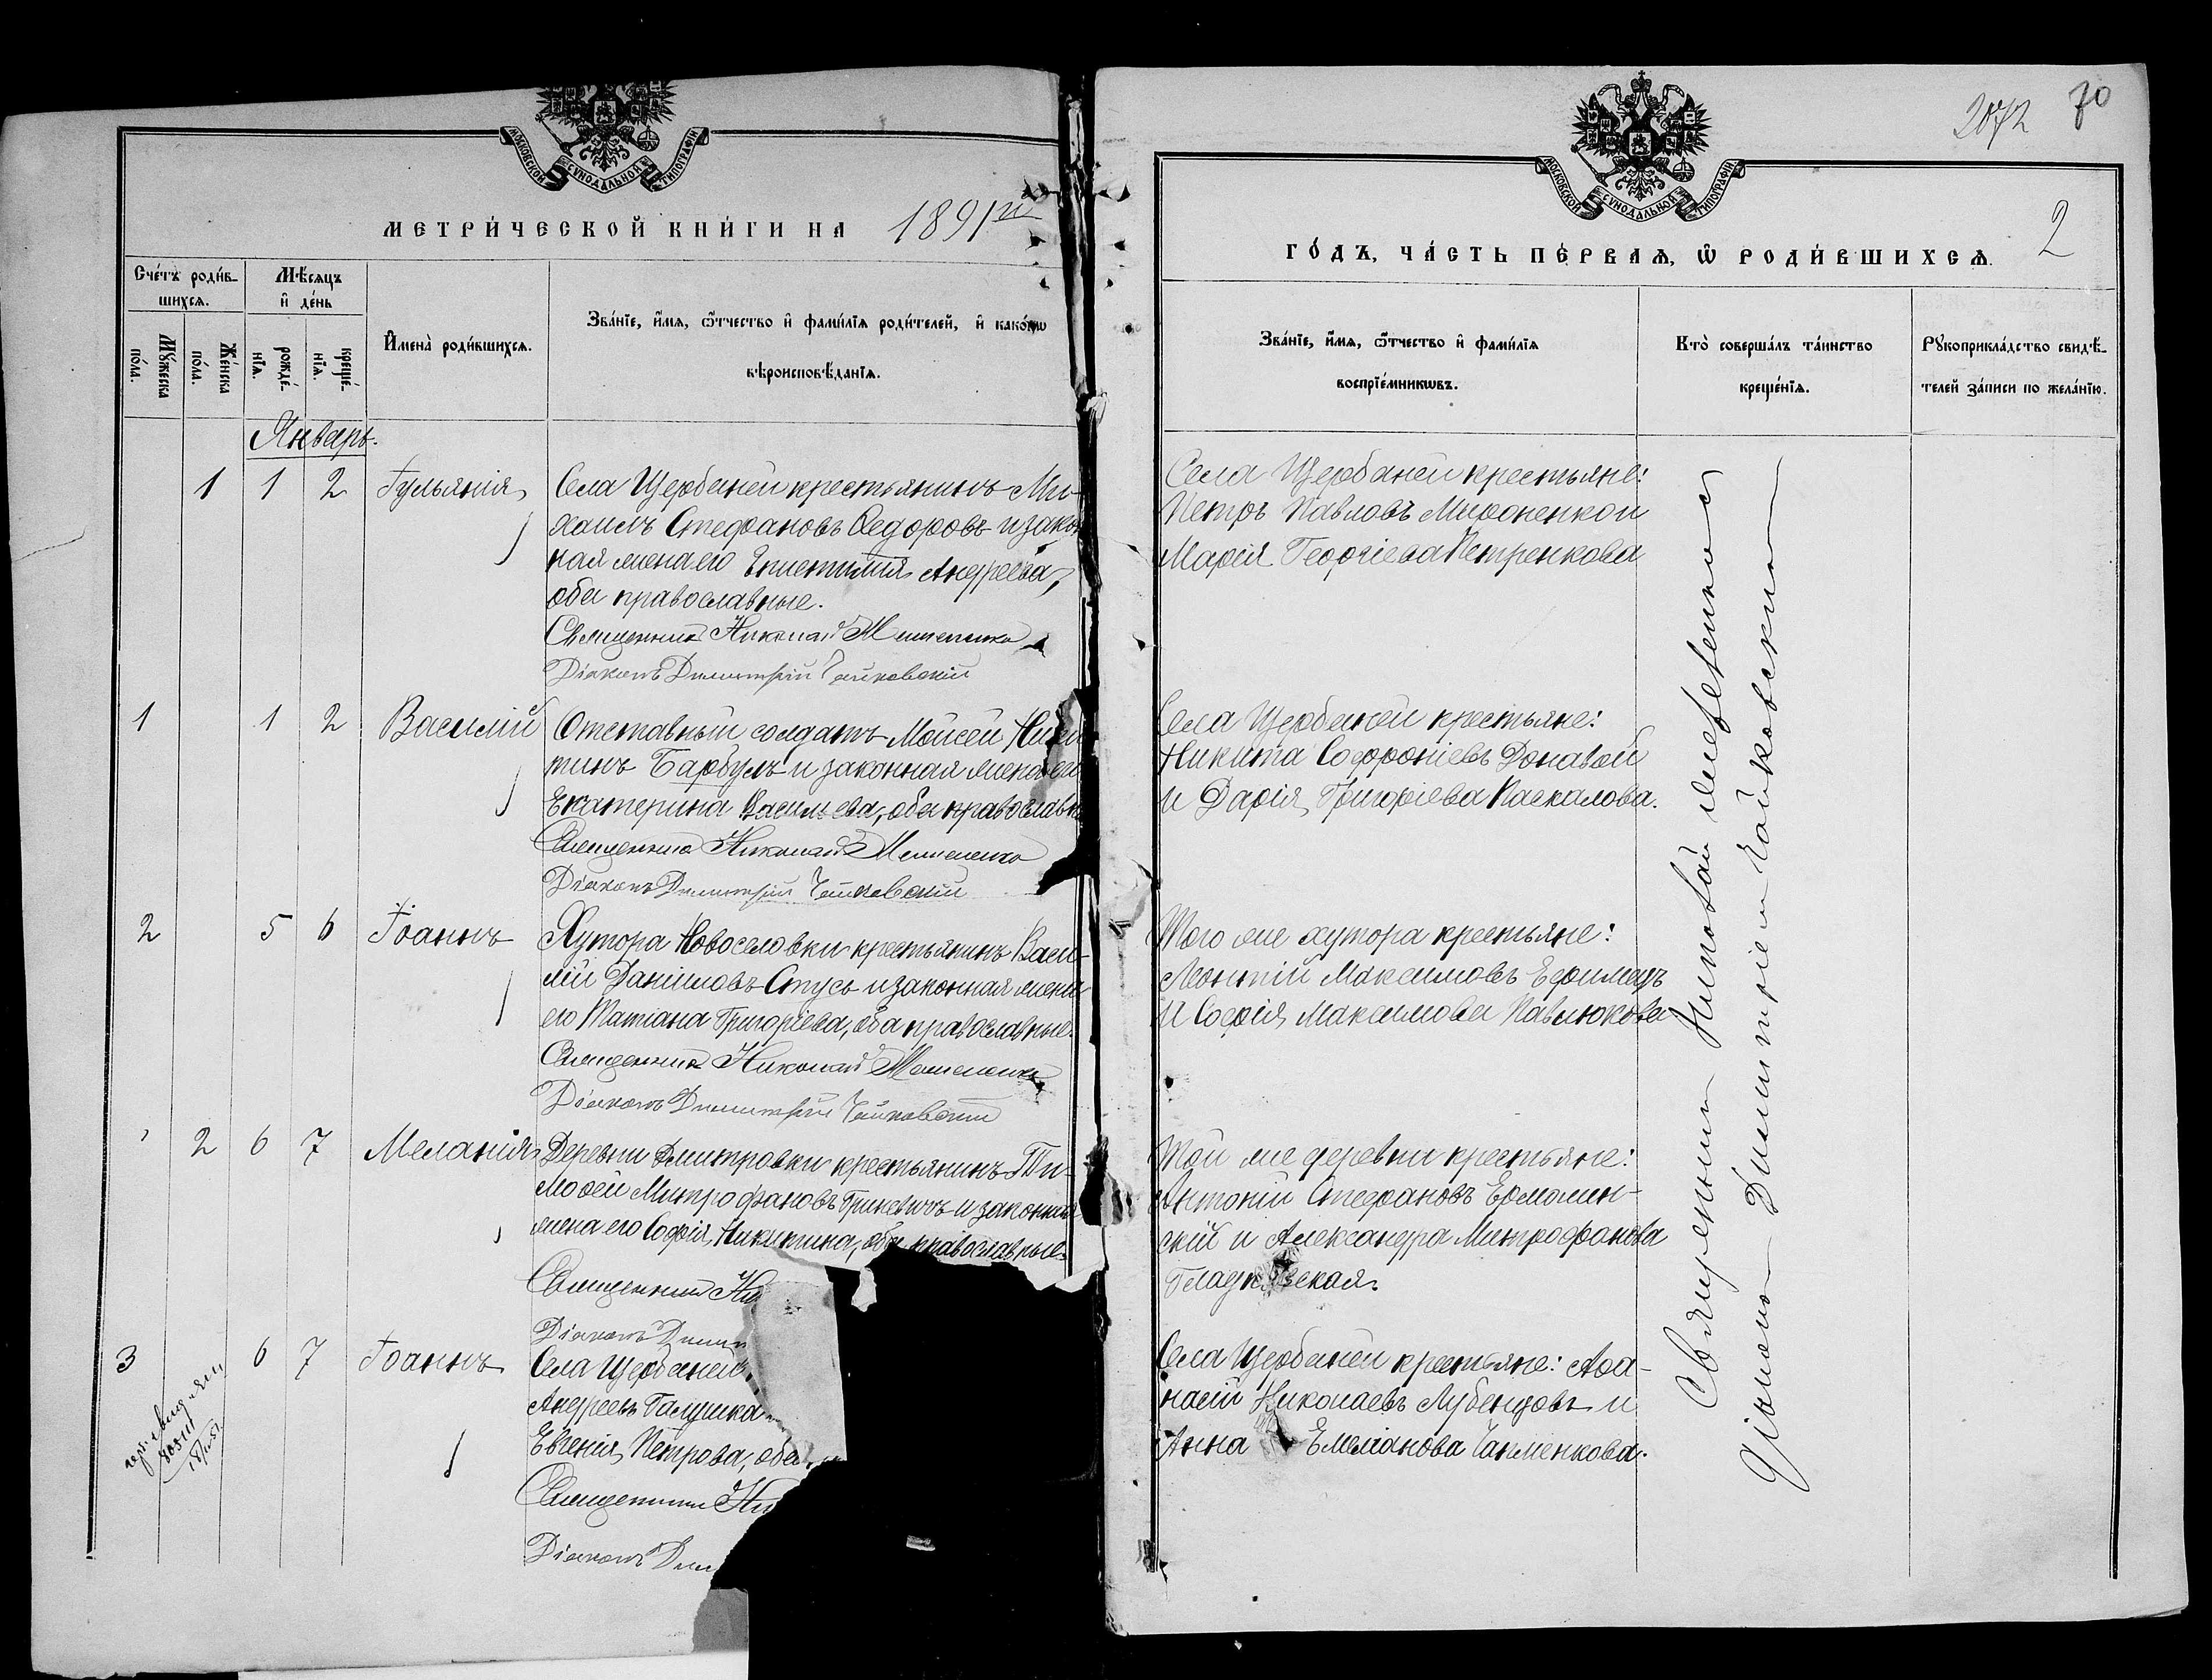 МОСКОВСКОЙ СѴНОДАЛЬНОЙ ТИПОГРАФІИ
МЕТРИ́ЧЕСКОЙ КНИ́ГИ НА 1891й
Сче́тъ роди́в-
шихсѧ.
Мѣ́сѧцъ
и҆ де́нь
Мꙋ́жеска
по́ла.
Же́нска
по́ла.
рожде́-
нїѧ.
креще́-
нїѧ.
И҆мена̀ роди́вшихсѧ.
Зва́нїе, и҆́мѧ, ѿ́чество и҆ фами́лїѧ роди́телей, и҆ како́гѡ
вѣроисповѣ́данїѧ.
Январь.
1 1 2 Іульянія
Села Щербаней крестьянинъ Ми-
хаилъ Стефановъ Ѳедоровъ и закон
ная жена его Епистимія Андреева,
оба православные.
Священникъ Николай
Діаконъ Димитрій Чайковскій
1 1 2 Василій
Отставный солдатъ Моисей Ники
тинъ Барбулъ и законная жена его
Екатерина Васильева, оба православн
Священникъ Николай
Діаконъ Димитрій Чайковскій
2 5 6 Іоаннъ
Хутора Новоселовки крестьянинъ Васи-
лій Даніиловъ Стусь и законная жена
его Татіана Григоріева, оба православные.
Священникъ Николай
Діаконъ Димитрій Чайковскій
2 6 7 Меланія
Деревни Дмитровки крестьянинъ Ти-
моѳей Митрофановъ Гриневичъ и законная
жена его Софія Никитина, оба православные.
Священникъ Ни
Діаконъ Дими
3 6 7 Іоаннъ
Села Щербаней
Андреевъ Галушка
Евгенія Петрова, оба
Священникъ Ни
Діаконъ Дим
2072 70
МОСКОВСКОЙ СѴНОДАЛЬНОЙ ТИПОГРАФІИ
ГО́ДЪ, ЧА́СТЬ ПЕ́РВАѦ, Ѡ҆ РОДИ́ВШИХСѦ. 2
Зва́нїе, и҆́мѧ, ѿ́чество и҆ фами́лїѧ
воспрїе́мникѡвъ.
Кто̀ соверша́лъ та́инство
креще́нїѧ.
Рꙋкоприкла́дство свидѣ́-
телей за́писи по жела́нїю.
Села Щербаней крестьяне:
Петръ Павловъ Мироненко и
Марія Георгіева Петренкова
Села Щербаней крестьяне:
Никита Софроніевъ Донавой
и Дарія Григоріева Паскалова.
Того же хутора крестьяне:
Леонтій Максимовъ Ефимецъ
и Софія Максимова Павлюкова
Той же деревни крестьяне:
Антоній Стефановъ Ермолин-
скій и Александра Митрофанова
Гладковская.
Села Щербаней крестьяне: Аѳа-
насій Николаевъ Лубенцовъ и
Анна Емеліанова Чапленкова.
Священникъ Николай
Діаконом Димитріем Чайковским